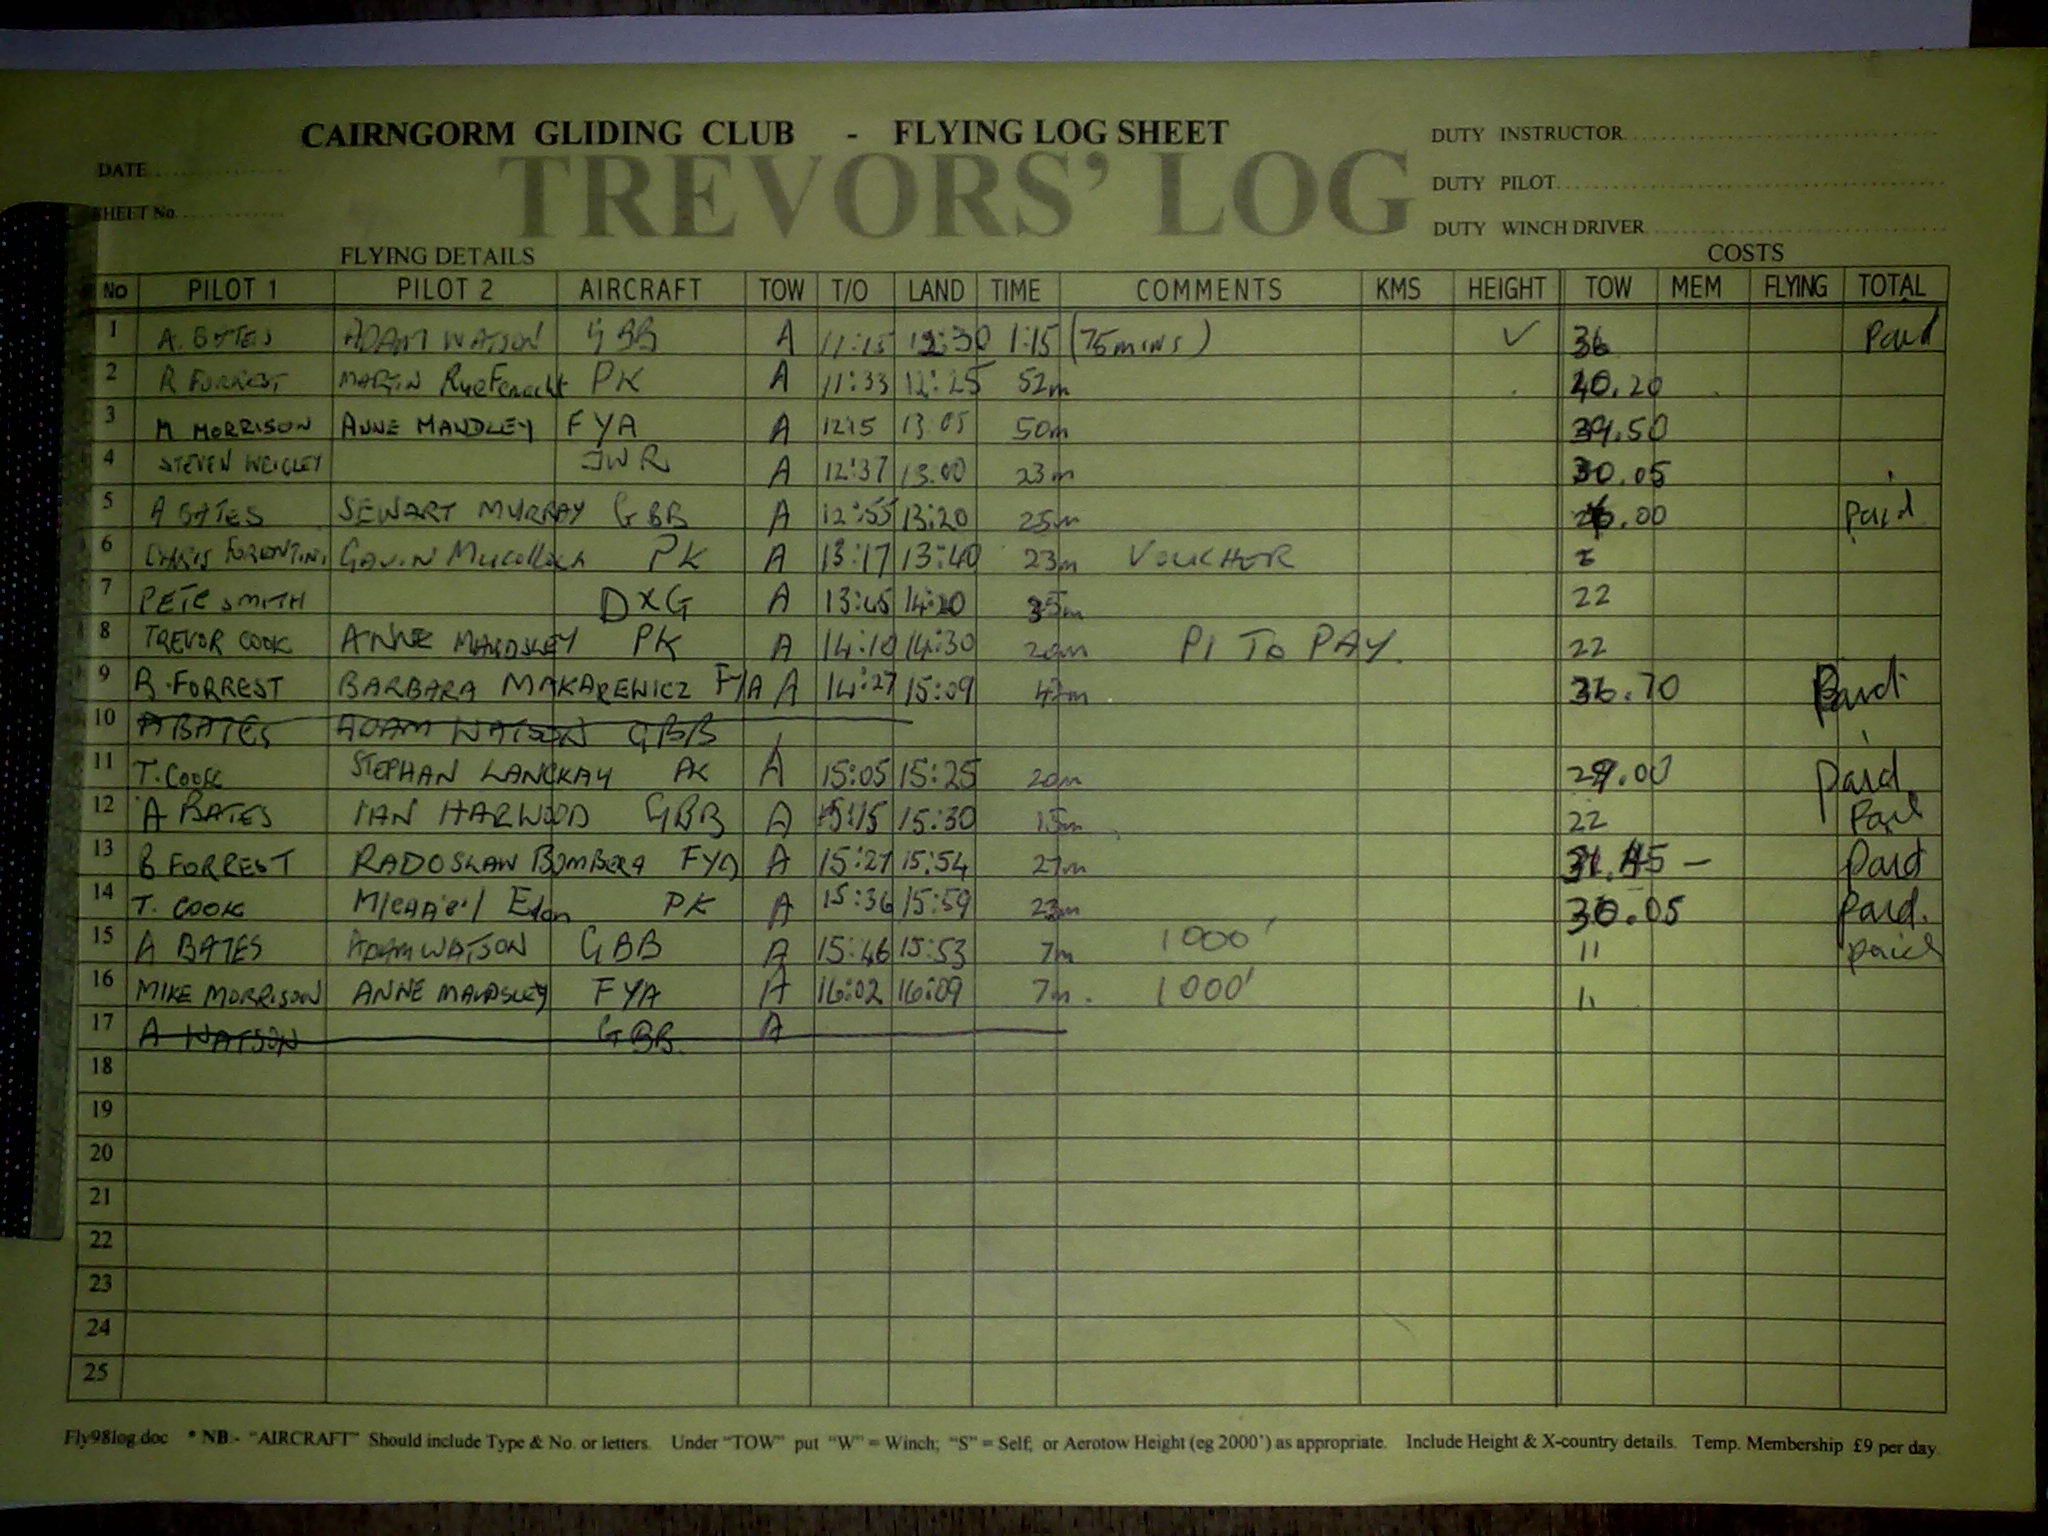 CAIRNGORM GLIDING CLUB - FLYING LOG SHEET
TREVORS' LOG
DATE
SHEET No.
DUTY INSTRUCTOR
DUTY PILOT
DUTY WINCH DRIVER
FLYING DETAILS COSTS
No PILOT 1 PILOT 2 AIRCRAFT TOW T/O LAND TIME COMMENTS KMS HEIGHT TOW MEM FLYING TOTAL
1 A. BATES ADAM WATSON GBB A 11:15 12:30 1:15 (75 MINS) ✓ 36 Paid
2 R FORREST MARTIN PK A 11:33 12:25 52m 40.20
3 M MORRISON ANNE MANDLEY FYA A 1215 13.05 50m 39.50
4 STEVEN WRIGLEY JWR A 12:37 13.00 23m 30.05
5 A BATES SEWART MURRAY GBB A 12:55 13:20 25m .00 Paid
6 CHRIS FORENTINI GAVIN PK A 13:17 13:40 23m VOUCHER
7 PETE SMITH DXG A 13:45 14:20 35m 22
8 TREVOR COOK ANNE MAUDSLEY PK A 14:10 14:30 20m P1 TO PAY. 22
9 B. FORREST BARBARA MAKAREWICZ FYA A 14:27 15:09 42m 36.70 Paid
10 A BATES ADAM WATSON GBB
11 T. COOK STEPHAN LANCKAY PK A 15:05 15:25 20m 29.00 paid
12 A BATES IAN HARWOOD GBB A 15:15 15:30 15m 22 Paid
13 B FORREST RADOSLAW BOMBERA FYA A 15:27 15:54 27m 31.45 - Paid
14 T. COOK PK A 15:36 15:59 23m 30.05 Paid.
15 A BATES ADAM WATSON GBB A 15:46 15:53 7m 1000' 11 paid
16 MIKE MORRISON ANNE MAUDSLEY FYA A 16:02 16:09 7m. 1000' 11
17 A WATSON GBB. A
18
19
20
21
22
23
24
25
Fly98log.doc * NB - "AIRCRAFT" Should include Type & No. or letters. Under "TOW" put "W" = Winch; "S" = Self; or Aerotow Height (eg 2000') as appropriate. Include Height & X-country details. Temp. Membership £9 per day.